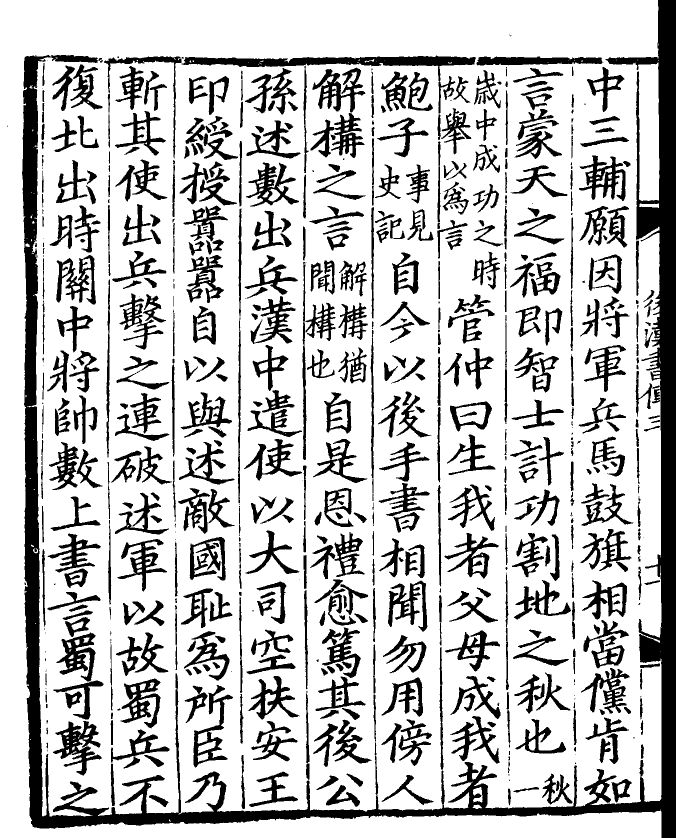 中三輔願因將軍兵馬鼓旗相當儻肯如
言蒙天之福即智士計功割地之秋也秋一
歲中成功之時故舉以爲言管仲曰生我者父母成我者
鮑子事見史記自今以後手書相聞勿用傍人
解構之言解構猶聞構也自是恩禮愈篤其後公
孫述數出兵漢中遣使以大司空扶安王
印綬授囂囂自以與述敵國恥爲所臣乃
斬其使出兵擊之連破述軍以故蜀兵不
復北出時關中將帥數上書言蜀可擊之
後漢書傳三